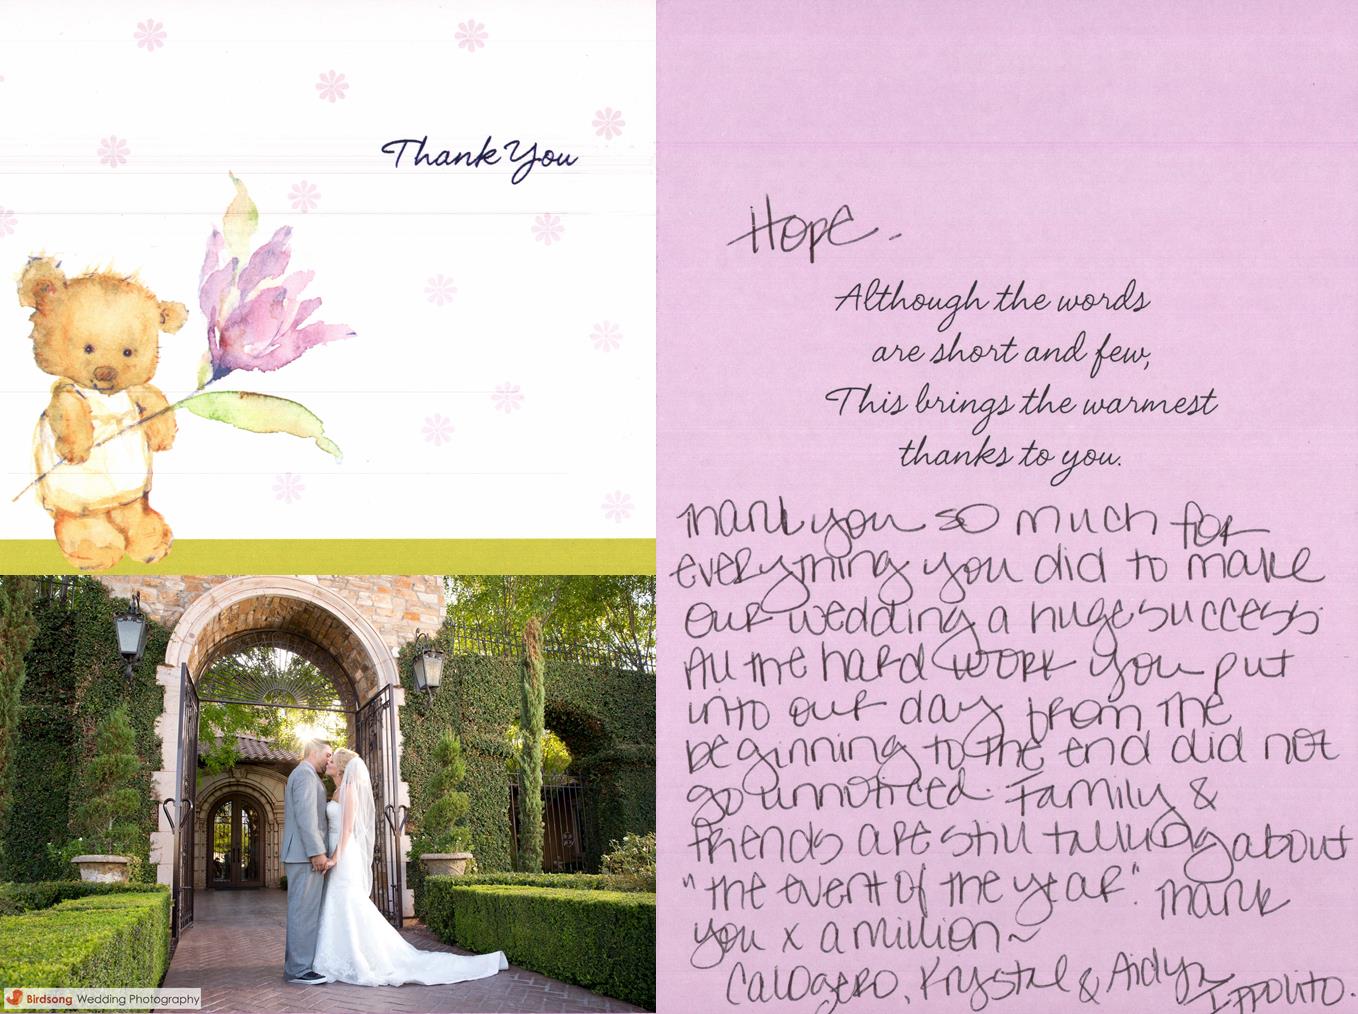 Thank You
Hope -
Although the words
are short and few,
This brings the warmest
thanks to you.
Thank you so much for
everything you did to make
our wedding a huge success.
All the hard work you put
into our day from the
beginning to the end did not
go unnoticed. Family &
friends are still talking about
"the event of the year". Thank
you x a million~
Calogero, Krystal & Aidyn
Ippolito.
Birdsong Wedding Photography